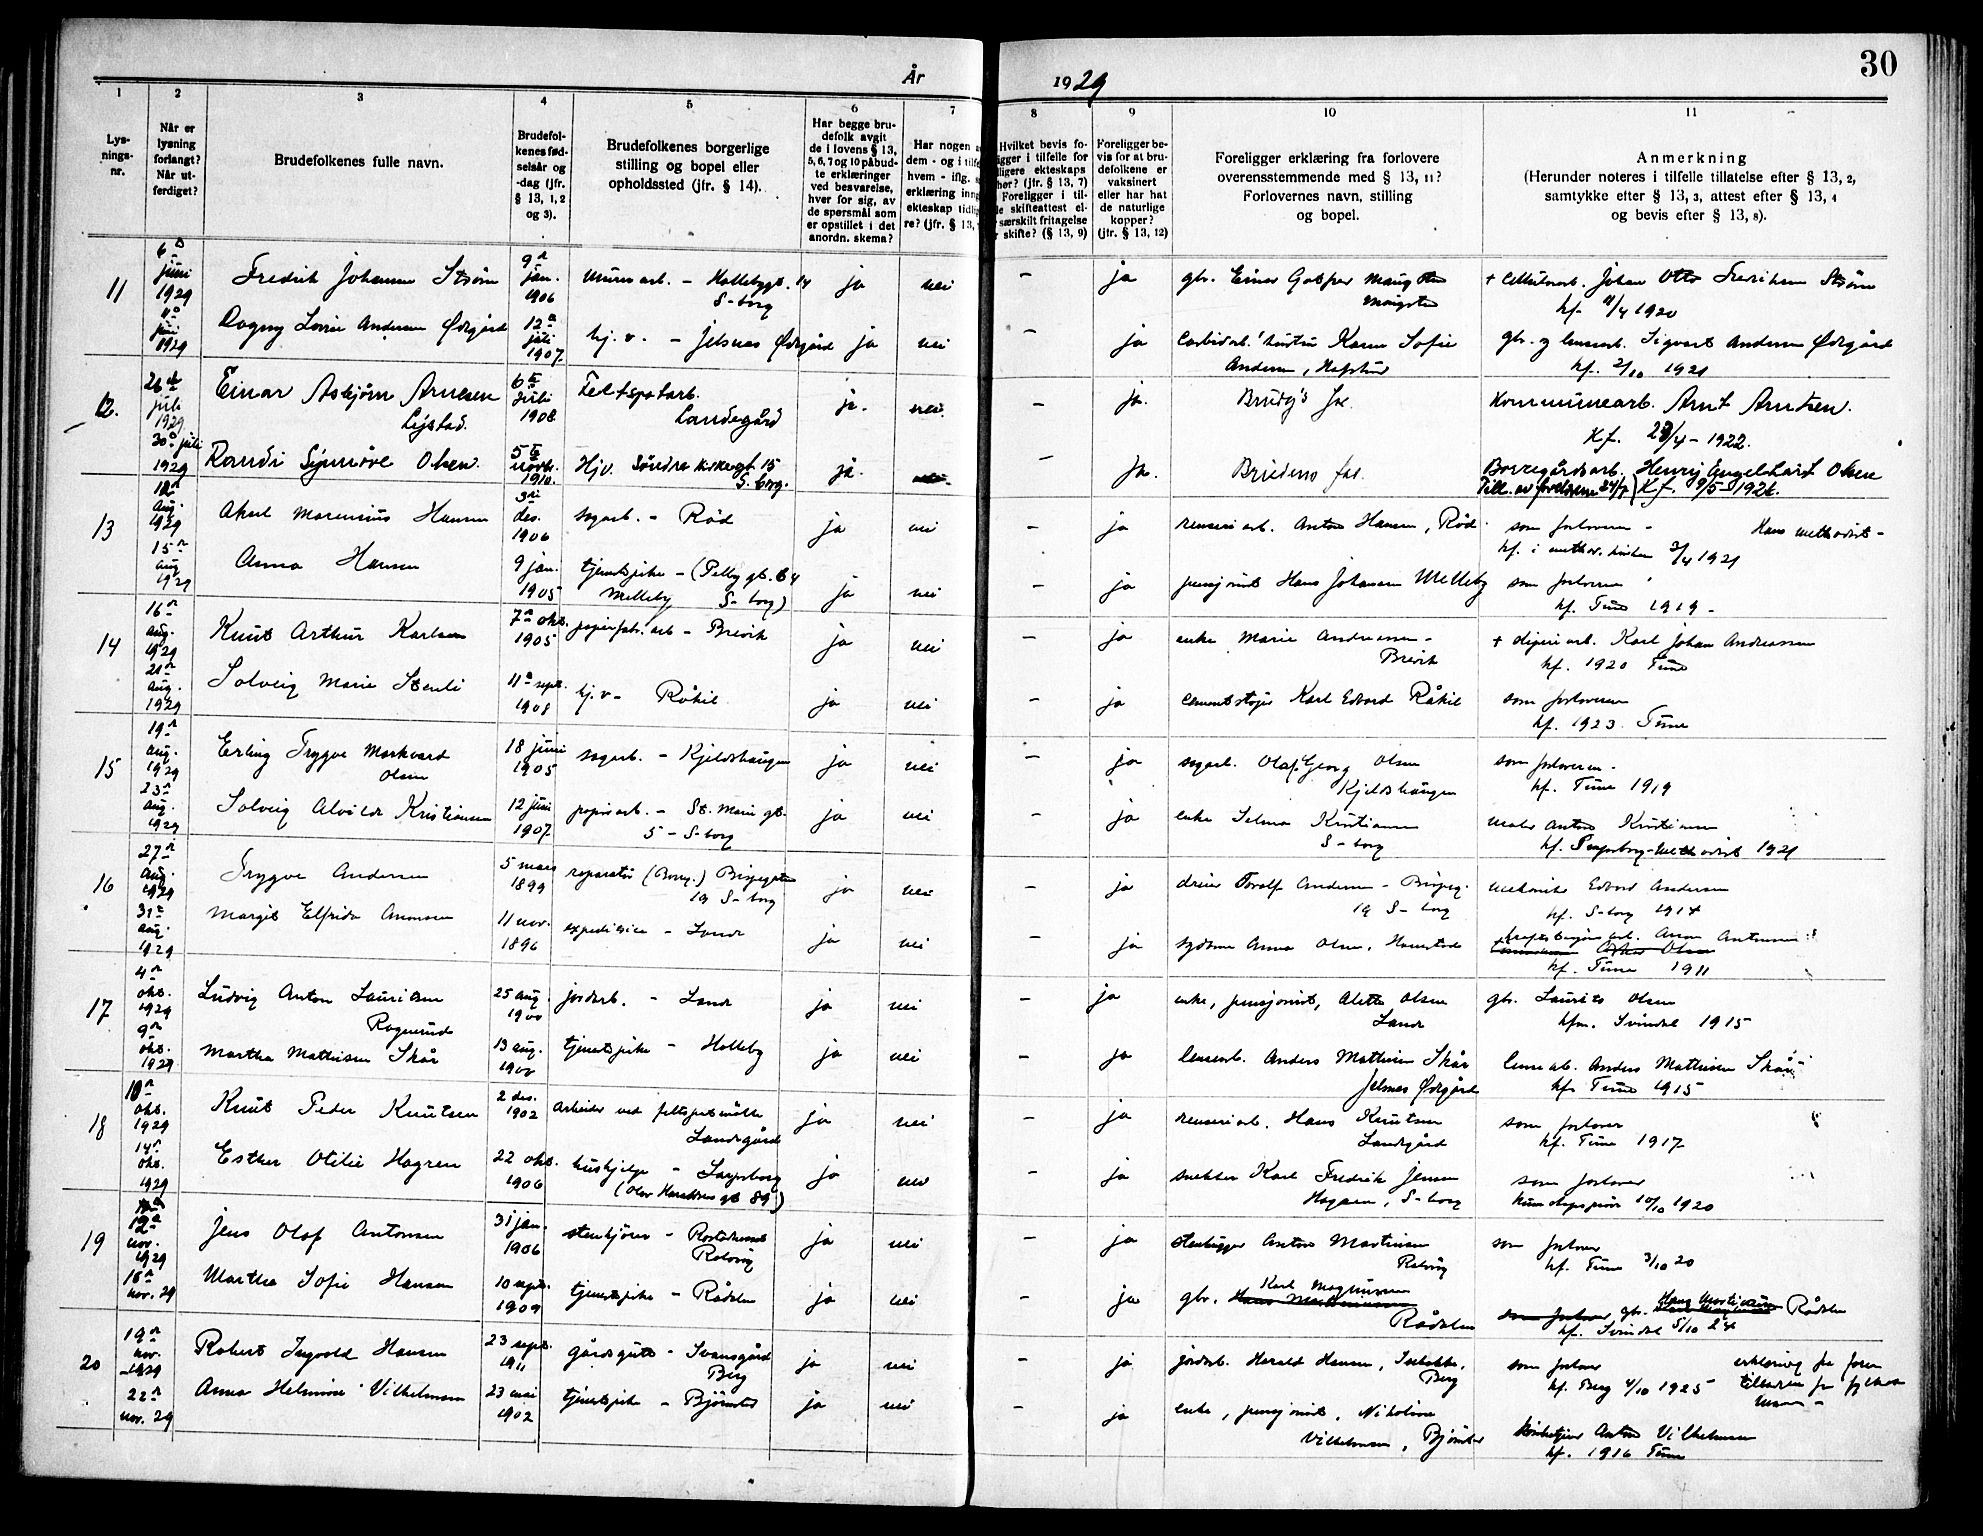 30
År 1929
1 2 3 4 5 6 7 8 9 10 11
Lys-
nings-
nr.
Når er
lysning
forlangt?
Når ut-
ferdiget?
Brudefolkenes fulle navn.
Brudefol-
kenes fød-
selsår og
-dag (jfr.
§ 13, 1, 2
og 3).
Brudefolkenes borgerlige
stilling og bopel eller
opholdssted (jfr. § 14).
Har begge bru-
defolk avgit
de i lovens § 13,
5, 6, 7 og 10 påbud-
te erklæringer
ved besvarelse,
hver for sig, av
de spørsmål som
er opstillet i det
anordn. skema?
Har nogen a
dem - og i tilfe
hvem - iflg.
erklæring inng
ekteskap tidlig
re? (jfr. § 13,
Hvilket bevis fo-
igger i tilfelle for
ligere ekteskaps
hør? (jfr. § 13, 7)
Foreligger i til-
le skifteattest el-
særskilt fritagelse
skifte? (§ 13, 9)
Foreligger be-
vis for at bru-
defolkene er
vaksinert
eller har hat
de naturlige
kopper?
(jfr. § 13, 12)
Foreligger erklæring fra forlovere
overensstemmende med § 13, 11?
Forlovernes navn, stilling
og bopel.
Anmerkning
(Herunder noteres i tilfelle tillatelse efter § 13, 2,
samtykke efter § 13, 3, attest efter § 13, 4
og bevis efter § 13, 8).
11
6 juni 1929
Fredrik Johannes Strøm
9 jan. 1906
murerarb. - Hollebygt. 14
S-borg
ja nei - ja
gbr. Einar
+ Cellulosearb. Johan Otto Fredriksen Strøm
kf. 11/4 1920
juni 1929
Dagny Lovise Andersen Ødegård
12 juli 1907
hj. v. - Jelsnes Ødegård
ja nei - ja
Carbidarb.'s hustru Karen Sofie
Andersen, Hafslund
gbr. og lensearb. Sigvart Andersen Ødegård
kf. 2/10 1921
12.
26 juli 1929
Einar Asbjørn Arnesen
Lystad.
6 juli 1908
Feltspatarb.
Landegård
ja. nei. - ja.
Brudg's far.
Kommunearb. Arnt Arntsen.
Kf. 23/4 - 1922.
30 juli 1929
Randi Synnøve Olsen.
5 novbr. 1910.
Hjv. Søndre Kirkegt. 15
S. borg.
ja. nei - Ja.
Brudens far.
Borregårdsarb. Henry Engelhart Olsen
Till. av foreldrene 24/7) Kf. 9/5 - 1926.
13
12 aug. 1929
Aksel Marensius Hansen
3 des. 1906
sagarb. - Rød
ja nei - ja
renseriarb. Anton Hansen, Rød.
som forloveren - Hans methodist -
kf. i method. kirken 3/4 1921
15 aug 1929
Anna Hansen
9 jan. 1905
tjenestepike - (Pellygt. 64
Melleby S-borg)
ja nei - ja
pensjonist Hans Johansen Melleby
som forloveren
kf. Tune 1919 -
14
16 aug. 1929
Knut Arthur Karlsen
7 okt. 1905
papirfabr. arb - Brevik
ja nei - ja
enke Marie Andreassen -
Brevik
+ digeriarb. Karl Johan Andreassen
kf. 1920 Tune
21 aug. 1929
Solveig Marie Stenli
11 sept. 1908
hj. v - Råkil
ja nei - ja
cementstøper Karl Edvard Råkil
som forloveren
kf. 1923. Tune
15
19 aug. 1929
Erling Trygve Markvard
Olsen
18 juni 1905
sagarb. - Kjeldshaugen
ja nei - ja
sagarb. Olaf Georg Olsen
Kjeldshaugen
som forloveren -
kf. Tune 1919
23 aug. 1929
Solveig Alvilde Kristiansen
12 juni 1907
papirarb. - St. Marie gt.
5 - S-borg
ja nei - ja
enke Selma Kristiansen
S-borg
maler Anton Kristiansen
kf. Sarpsborg-methodist 1921
16
27 aug. 1929
Trygve Andersen
5 mars 1899
reparatør (Borreg.) Bispegaten
19 S-borg
ja nei - ja
dreier Torolf Andersen - Bispeg.
19 S-borg
mekanik Edvard Andersen
kf. S-borg 1914
31 aug. 1929
Margit Elfrida Anonsen
11 nov. 1896
expeditrice - Sande
ja nei - ja
sydame Anna Olsen, Hannestad
Anon Antonsen
kf. Tune 1911
17
4 okt. 1929
Ludvig Anton Lauritsen
Rognerud
25 aug. 1900
jordarb. - Sande
ja nei - ja
enke, pensjonist, Alette Olsen
Sande
gbr. Laurits Olsen
kfm. Svindal 1915
9 okt. 1929
Martha Mathisen Skår
13 aug. 1900
tjenestepike - Holleby
ja nei - ja
lensearb. Anders Mathisen Skår
Jelsnes Ødegård
lensearb. Anders Mathisen Skår
kf. Tune 1915
18
10 okt. 1929
Knut Peder Knutsen
2 des. 1902
Arbeider ved feltspatmølle
Landegård
ja nei - ja
renseriarb. Hans Knutsen
Landegård
som forlover
kf. Tune 1917
14 okt. 1929
Esther Otilie Hagren
22 okt. 1906
hushjelp - Sarpsborg
(Olav Haraldsens gt 89)
ja nei - ja
snekker Karl Fredrik Jensen
Hagren, S-borg
som forlover
kunskapsprøve 10/10 1920
19
12 nov. 1929
Jens Olaf Antonsen
31 jan. 1906
stenkjører -
Rolvsøy
ja nei - ja
stenhugger Anton Martinsen
Rolvsøy
som forlover
kf. Tune 3/10 20
16 nov. 29
Martha Sofie Hansen
10 sept. 1909
tjenestepike - Rådalen
ja nei - ja
gbr. Karl Magnussen
Rådalen
som forlover gbr. Hans Martinsen Rådalen
kf. Svindal 5/10 24
20
19 nov. 1929
Robert Ingvald Hansen
23 sept. 1911
gårdsgutt - Svansgård
Berg
ja nei - ja
jordarb. Harald Hansen, Isebakke,
Berg
som forlover
kf. Berg 4/10 1925
erklæring fra foren
tilladelse fra fylkes
mann -
22 nov. 29
Anna Helmine Vilhelmsen
23 mai 1902
tjenestepike - Bjørnstad
ja nei - ja
enke, pensjonist, Nikoline
Vilhelmsen, Bjørnstad
Anton Vilhelmsen
kf. 1916 Tune